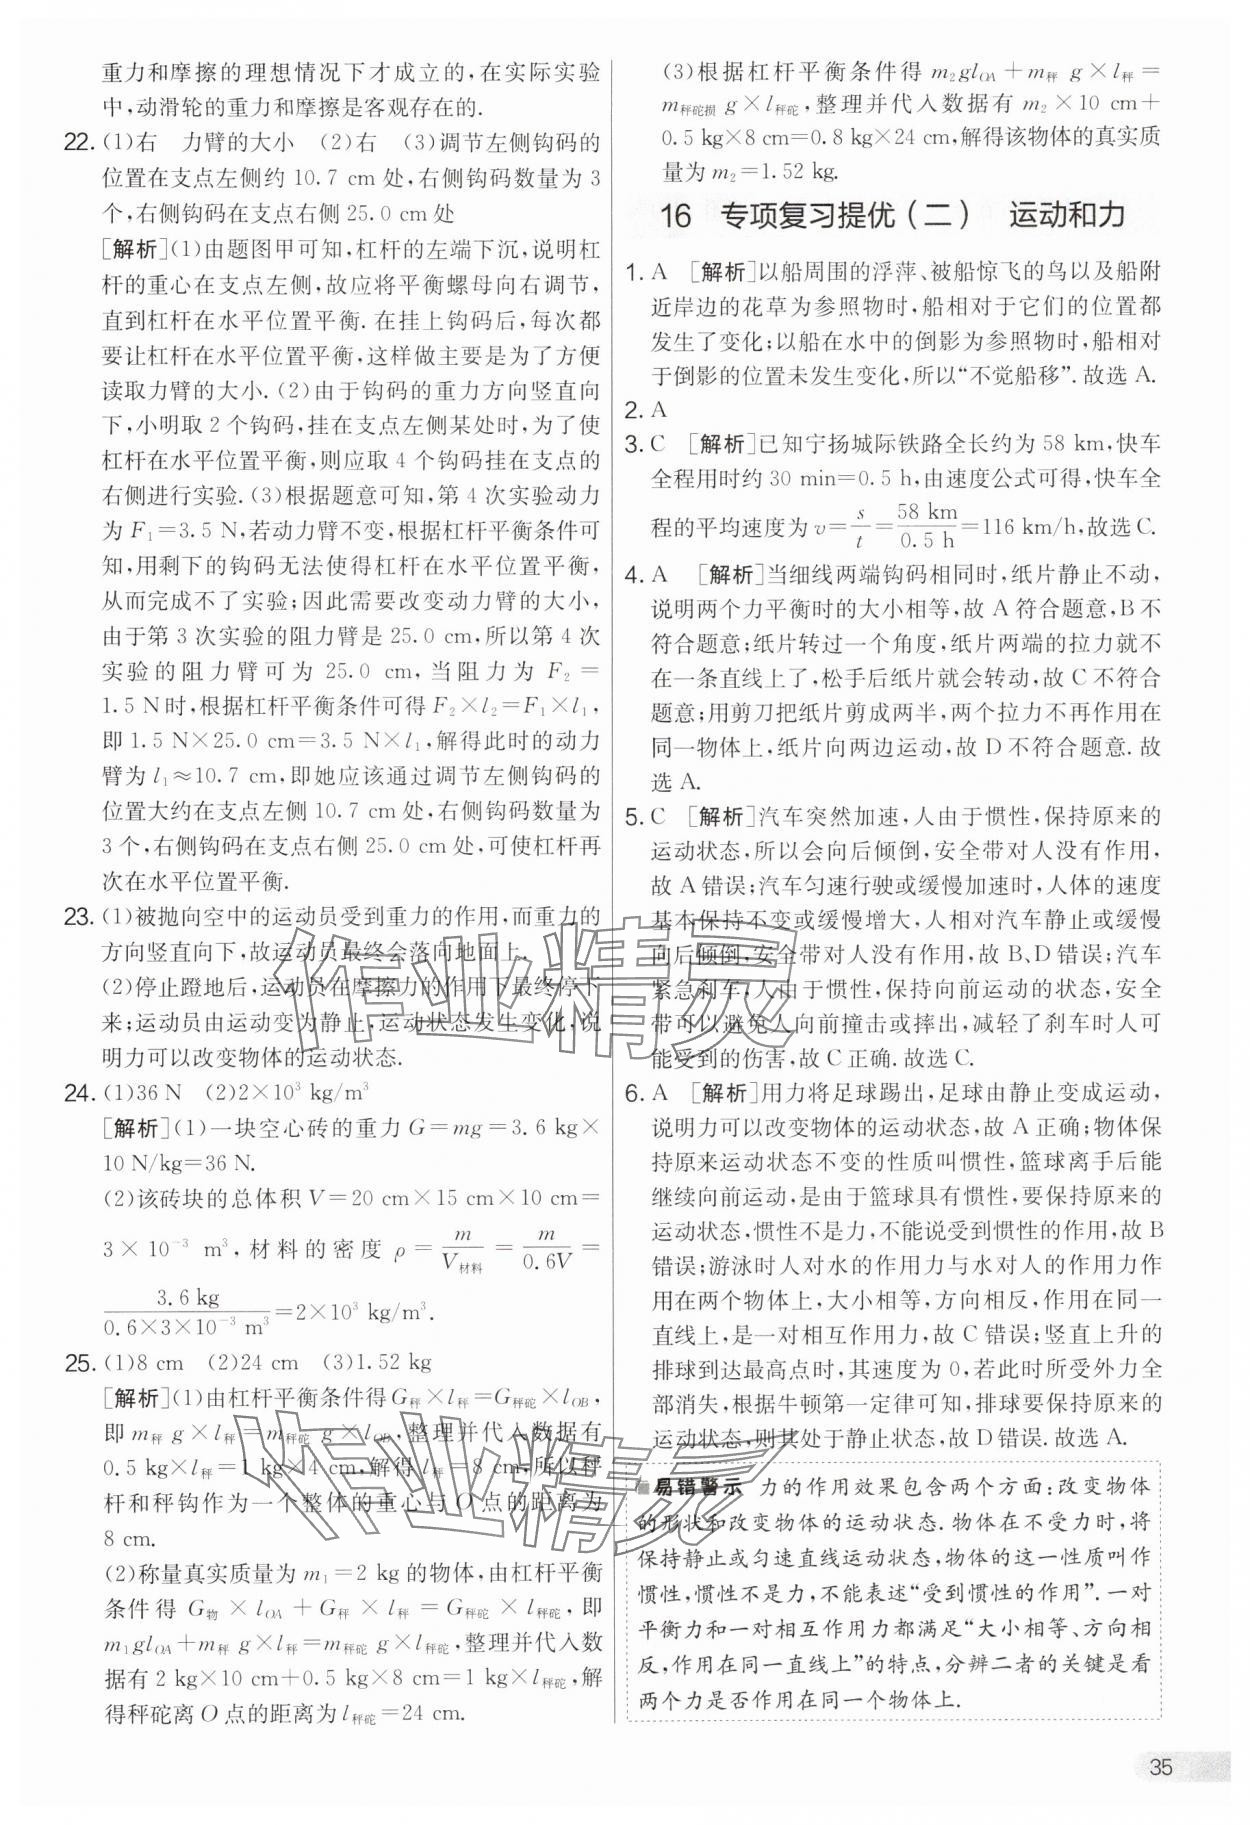 重力和摩擦的理想情况下才成立的,在实际实验
中,动滑轮的重力和摩擦是客观存在的.
22. (1)右 力臂的大小 (2)右 (3)调节左侧钩码的
位置在支点左侧约 10.7 cm 处,右侧钩码数量为 3
个,右侧钩码在支点右侧 25.0 cm 处
[解析](1)由题图甲可知,杠杆的左端下沉,说明杠
杆的重心在支点左侧,故应将平衡螺母向右调节,
直到杠杆在水平位置平衡.在挂上钩码后,每次都
要让杠杆在水平位置平衡,这样做主要是为了方便
读取力臂的大小.(2)由于钩码的重力方向竖直向
下,小明取 2 个钩码,挂在支点左侧某处时,为了使
杠杆在水平位置平衡,则应取 4 个钩码挂在支点的
右侧进行实验.(3)根据题意可知,第 4 次实验动力
为 F₁=3.5 N,若动力臂不变,根据杠杆平衡条件可
知,用剩下的钩码无法使得杠杆在水平位置平衡,
从而完成不了实验;因此需要改变动力臂的大小,
由于第 3 次实验的阻力臂是 25.0 cm,所以第 4 次
实验的阻力臂可为 25.0 cm,当阻力为 F₂=
1.5 N时,根据杠杆平衡条件可得 F₂×l₂=F₁×l₁,
即 1.5 N×25.0 cm=3.5 N×l₁,解得此时的动力
臂为 l₁≈10.7 cm,即她应该通过调节左侧钩码的
位置大约在支点左侧 10.7 cm 处,右侧钩码数量为
3 个,右侧钩码在支点右侧 25.0 cm 处,可使杠杆再
次在水平位置平衡.
23. (1)被抛向空中的运动员受到重力的作用,而重力的
方向竖直向下,故运动员最终会落向地面上.
(2)停止蹬地后,运动员在摩擦力的作用下最终停下
来;运动员由运动变为静止,运动状态发生变化,说
明力可以改变物体的运动状态.
24. (1)36 N (2)2×10³ kg/m³
[解析](1)一块空心砖的重力 G=mg=3.6 kg×
10 N/kg=36 N.
(2)该砖块的总体积 V=20 cm×15 cm×10 cm=
3×10⁻³ m³,材料的密度 ρ=m/V材料=m/0.6V=
3.6 kg/(0.6×3×10⁻³ m³)=2×10³ kg/m³.
25. (1)8 cm (2)24 cm (3)1.52 kg
[解析](1)由杠杆平衡条件得 G秤×l秤=G秤砣×lOB,
即 m秤 g×l秤=m秤砣 g×lOB,整理并代入数据有
0.5 kg×l秤=1 kg×4 cm,解得 l秤=8 cm,所以秤
杆和秤钩作为一个整体的重心与 O 点的距离为
8 cm.
(2)称量真实质量为 m₁=2 kg 的物体,由杠杆平衡
条件得 G物×lOA+G秤×l秤=G秤砣×l秤砣,即
m₁glOA+m秤 g×l秤=m秤砣 g×l秤砣,整理并代入数
据有 2 kg×10 cm+0.5 kg×8 cm=1 kg×l秤砣,解
得秤砣离 O 点的距离为 l秤砣=24 cm.
(3)根据杠杆平衡条件得 m₂glOA+m秤 g×l秤=
m秤砣损 g×l秤砣,整理并代入数据有 m₂×10 cm+
0.5 kg×8 cm=0.8 kg×24 cm,解得该物体的真实质
量为 m₂=1.52 kg.
16 专项复习提优(二) 运动和力
1. A [解析]以船周围的浮萍、被船惊飞的鸟以及船附
近岸边的花草为参照物时,船相对于它们的位置都
发生了变化;以船在水中的倒影为参照物时,船相对
于倒影的位置未发生变化,所以“不觉船移”.故选 A.
2. A
3. C [解析]已知宁扬城际铁路全长约为 58 km,快车
全程用时约为 30 min=0.5 h,由速度公式可得,快车全
程的平均速度为 v=s/t=58 km/0.5 h=116 km/h,故选 C.
4. A [解析]当细线两端钩码相同时,纸片静止不动,
说明两个力平衡时的大小相等,故 A 符合题意,B 不
符合题意;纸片转过一个角度,纸片两端的拉力就不
在一条直线上了,松手后纸片就会转动,故 C 不符合
题意;用剪刀把纸片剪成两半,两个拉力不再作用在
同一物体上,纸片向两边运动,故 D 不符合题意.故
选 A.
5. C [解析]汽车突然加速,人由于惯性,保持原来的
运动状态,所以会向后倾倒,安全带对人没有作用,
故 A 错误;汽车匀速行驶或缓慢加速时,人体的速度
基本保持不变或缓慢增大,人相对汽车静止或缓慢
向后倾倒,安全带对人没有作用,故 B、D 错误;汽车
紧急刹车,人由于惯性,保持向前运动的状态,安全
带可以避免人向前撞击或摔出,减轻了刹车时人可
能受到的伤害,故 C 正确.故选 C.
6. A [解析]用力将足球踢出,足球由静止变成运动,
说明力可以改变物体的运动状态,故 A 正确;物体保
持原来运动状态不变的性质叫惯性,篮球离手后能
继续向前运动,是由于篮球具有惯性,要保持原来的
运动状态,惯性不是力,不能说受到惯性的作用,故 B
错误;游泳时人对水的作用力与水对人的作用力作
用在两个物体上,大小相等,方向相反,作用在同一
直线上,是一对相互作用力,故 C 错误;竖直上升的
排球到达最高点时,其速度为 0,若此时所受外力全
部消失,根据牛顿第一定律可知,排球要保持原来的
运动状态,则其处于静止状态,故 D 错误.故选 A.
易错警示 力的作用效果包含两个方面:改变物体
的形状和改变物体的运动状态.物体在不受力时,将
保持静止或匀速直线运动状态,物体的这一性质叫作
惯性,惯性不是力,不能表述“受到惯性的作用”.一对
平衡力和一对相互作用力都满足“大小相等、方向相
反,作用在同一直线上”的特点,分辨二者的关键是看
两个力是否作用在同一个物体上.
35
作业精灵
作业精灵